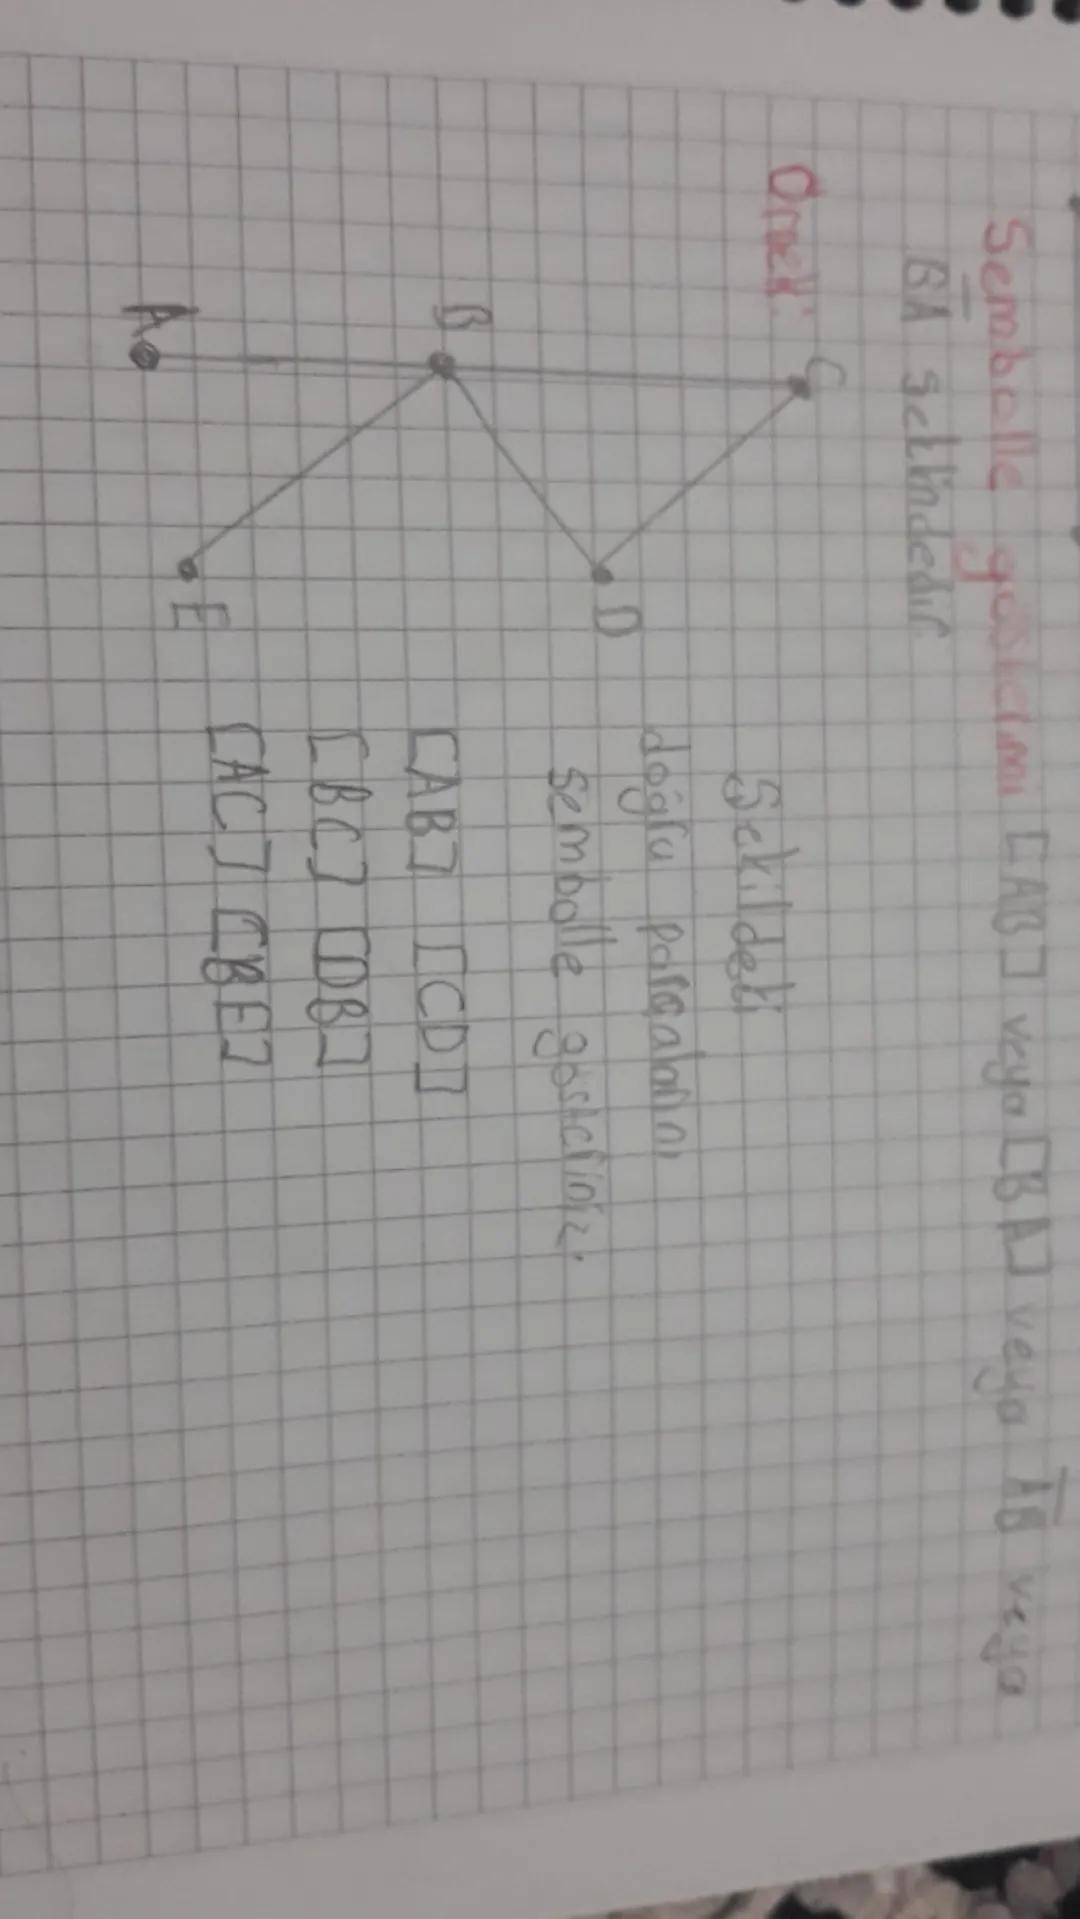 Sembolle gösterimi [AB] veya [BA] veya A̅B̅ veya
B̅A̅ şeklindedir.
Örnek:
C
B
A
D
E
Şekildeki
doğru parçalarını
sembolle gösteriniz.
[AB] [CD]
[BC] [DB]
[AC] [BE]